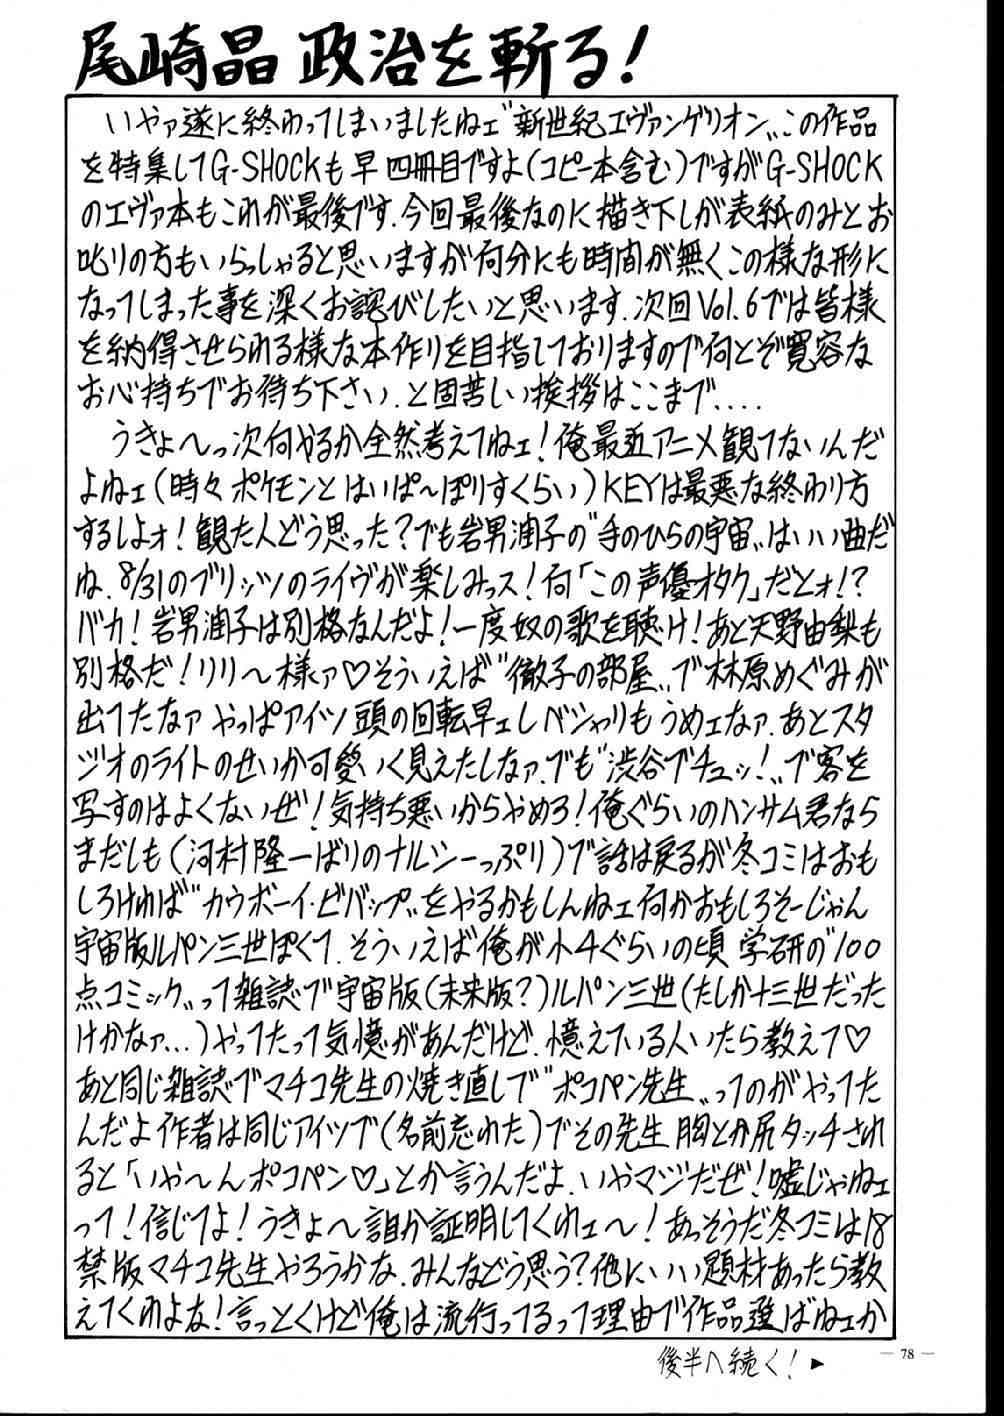 尾崎晶 政治を斬る!
いやァ遂に終わってしまいましたねェ"新世紀エヴァンゲリオン〟この作品
を特集してG-SHOCKも早四冊目ですよ(コピー本含む)ですがG-SHOCK
のエヴァ本もこれが最後です.今回最後なのに描き下しが表紙のみとお
叱りの方もいらっしゃると思いますが何分にも時間が無くこの様な形に
なってしまった事を深くお詫びしたいと思います.次回Vol.6では皆様
を納得させられる様な本作りを目指しておりますので何とぞ寛容な
お心持ちでお待ち下さい.と固苦しい挨拶はここまで....
うきょ〜っ次何やるか全然考えてねェ!俺最近アニメ観てないんだ
よねェ(時々ポケモンとはいぱ〜ぽりすくらい)KEYは最悪な終わり方
するしよォ!観た人どう思った?でも岩男潤子の"手のひらの宇宙〟はいい曲だ
ね.8/31のブリッツのライヴが楽しみっス!何「この声優オタク」だとォ!?
バカ!岩男潤子は別格なんだよ!一度奴の歌を聴け!あと天野由梨も
別格だ!リリ〜様ァ♡そういえば"徹子の部屋〟で林原めぐみが
出てたなァ やっぱアイツ頭の回転早ェしベシャリもうめェなァ.あとスタ
ジオのライトのせいか可愛いく見えたしなァ.でも"渋谷でチュッ!〟で客を
写すのはよくないぜ!気持ち悪いからやめろ!俺ぐらいのハンサム君なら
まだしも(河村隆一ばりのナルシーっぷり)で話は戻るが冬コミはおも
しろければ"カウボーイ・ビバップ〟をやるかもしんねェ何かおもしろそーじゃん
宇宙版ルパン三世ぽくて.そういえば俺が小4ぐらいの頃 学研の"100
点コミック〟って雑誌で宇宙版(未来版?)ルパン三世(たしか十三世だった
けかなァ...)やってたって気憶があんだけど.憶えている人いたら教えて♡
あと同じ雑誌でマチコ先生の焼き直しで"ポコペン先生〟ってのがやってた
んだよ作者は同じアイツで(名前忘れた)でその先生 胸とか尻タッチされ
ると「いや〜んポコペン♡」とか言うんだよ.いやマジだぜ!嘘じゃねェ
って!信じてよ!うきょ〜誰か証明してくれェ〜!あっそうだ冬コミは18
禁版マチコ先生やろうかな.みんなどう思う?他にいい題材あったら教
えてくれよな!言っとくけど俺は流行ってるって理由で作品選ばねェか
後半へ続く!▶
— 78 —